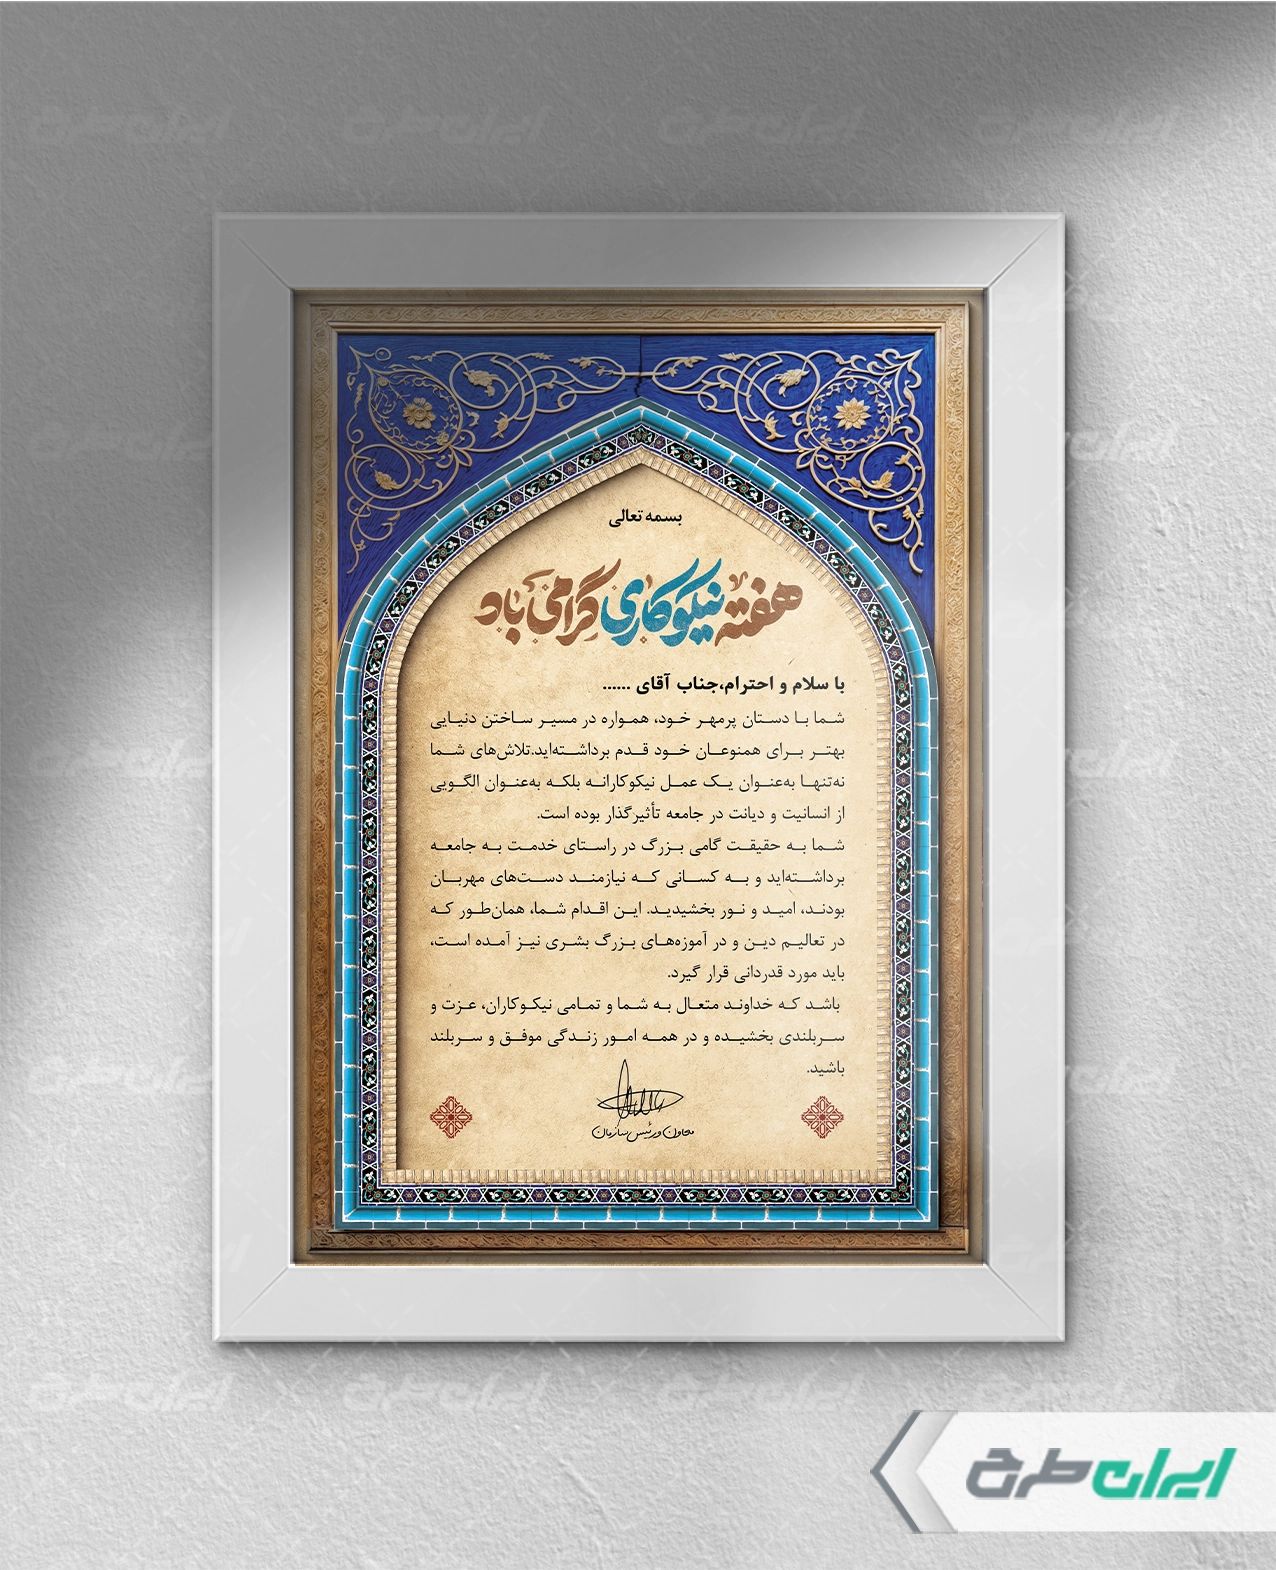 بسمه تعالی
هفته نیکوکاری گرامی باد
با سلام و احترام،جناب آقای ......
شما با دستان پرمهر خود، همواره در مسیر ساختن دنیایی
بهتر برای همنوعان خود قدم برداشته‌اید.تلاش‌های شما
نه‌تنها به‌عنوان یک عمل نیکوکارانه بلکه به‌عنوان الگویی
از انسانیت و دیانت در جامعه تأثیرگذار بوده است.
شما به حقیقت گامی بزرگ در راستای خدمت به جامعه
برداشته‌اید و به کسانی که نیازمند دست‌های مهربان
بودند، امید و نور بخشیدید. این اقدام شما، همان‌طور که
در تعالیم دین و در آموزه‌های بزرگ بشری نیز آمده است،
باید مورد قدردانی قرار گیرد.
باشد که خداوند متعال به شما و تمامی نیکوکاران، عزت و
سربلندی بخشیده و در همه امور زندگی موفق و سربلند
باشید.
معاون و رئیس سازمان
ایران طرح